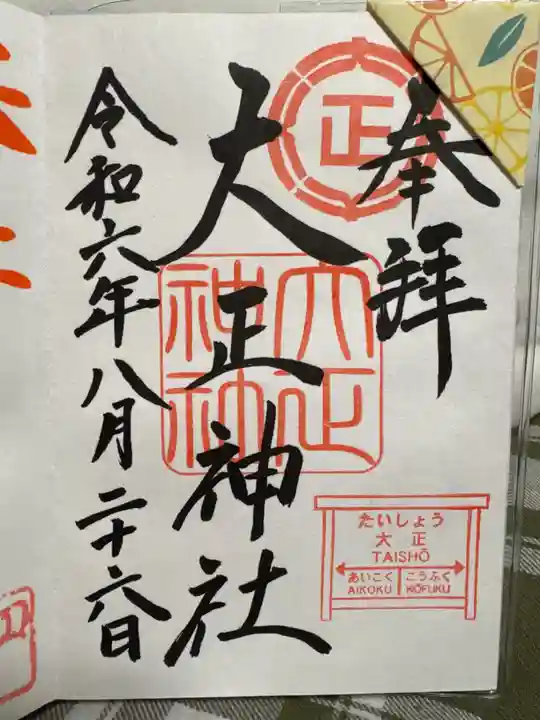 奉拝
正
大正神社
大正神社
令和六年八月二十六日
たいしょう
大正
TAISHŌ
あいこく こうふく
AIKOKU KŌFUKU